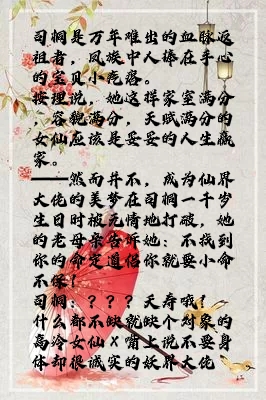 司桐是万年难出的血脉返
祖者，凤族中人捧在手心
的宝贝小疙瘩。
按理说，她这样家室满分
，容貌满分，天赋满分的
女仙应该是妥妥的人生赢
家。
——然而并不，成为仙界
大佬的美梦在司桐一千岁
生日时被无情地打破，她
的老母亲告诉她：不找到
你的命定道侣你就要小命
不保！
司桐：？？？天寿哦？
什么都不缺就缺个对象的
高冷女仙x嘴上说不要身
体却很诚实的妖界大佬